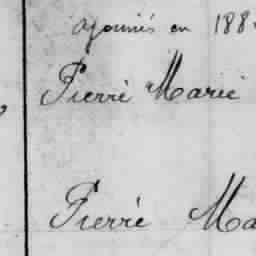 ajournés en 188
Pierré Marie
Pierré Ma